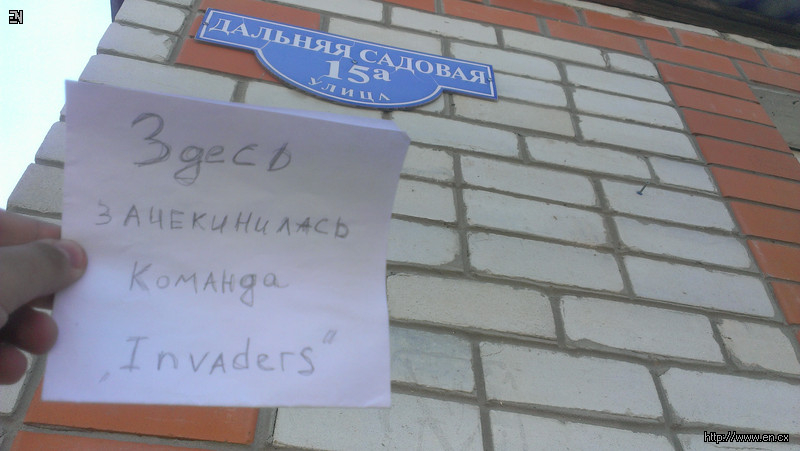 EN
ДАЛЬНЯЯ САДОВАЯ
15а
УЛИЦА
Здесь
ЗАЧЕКИНИЛАСЬ
Команда
„Invaders"
http://www.en.cx